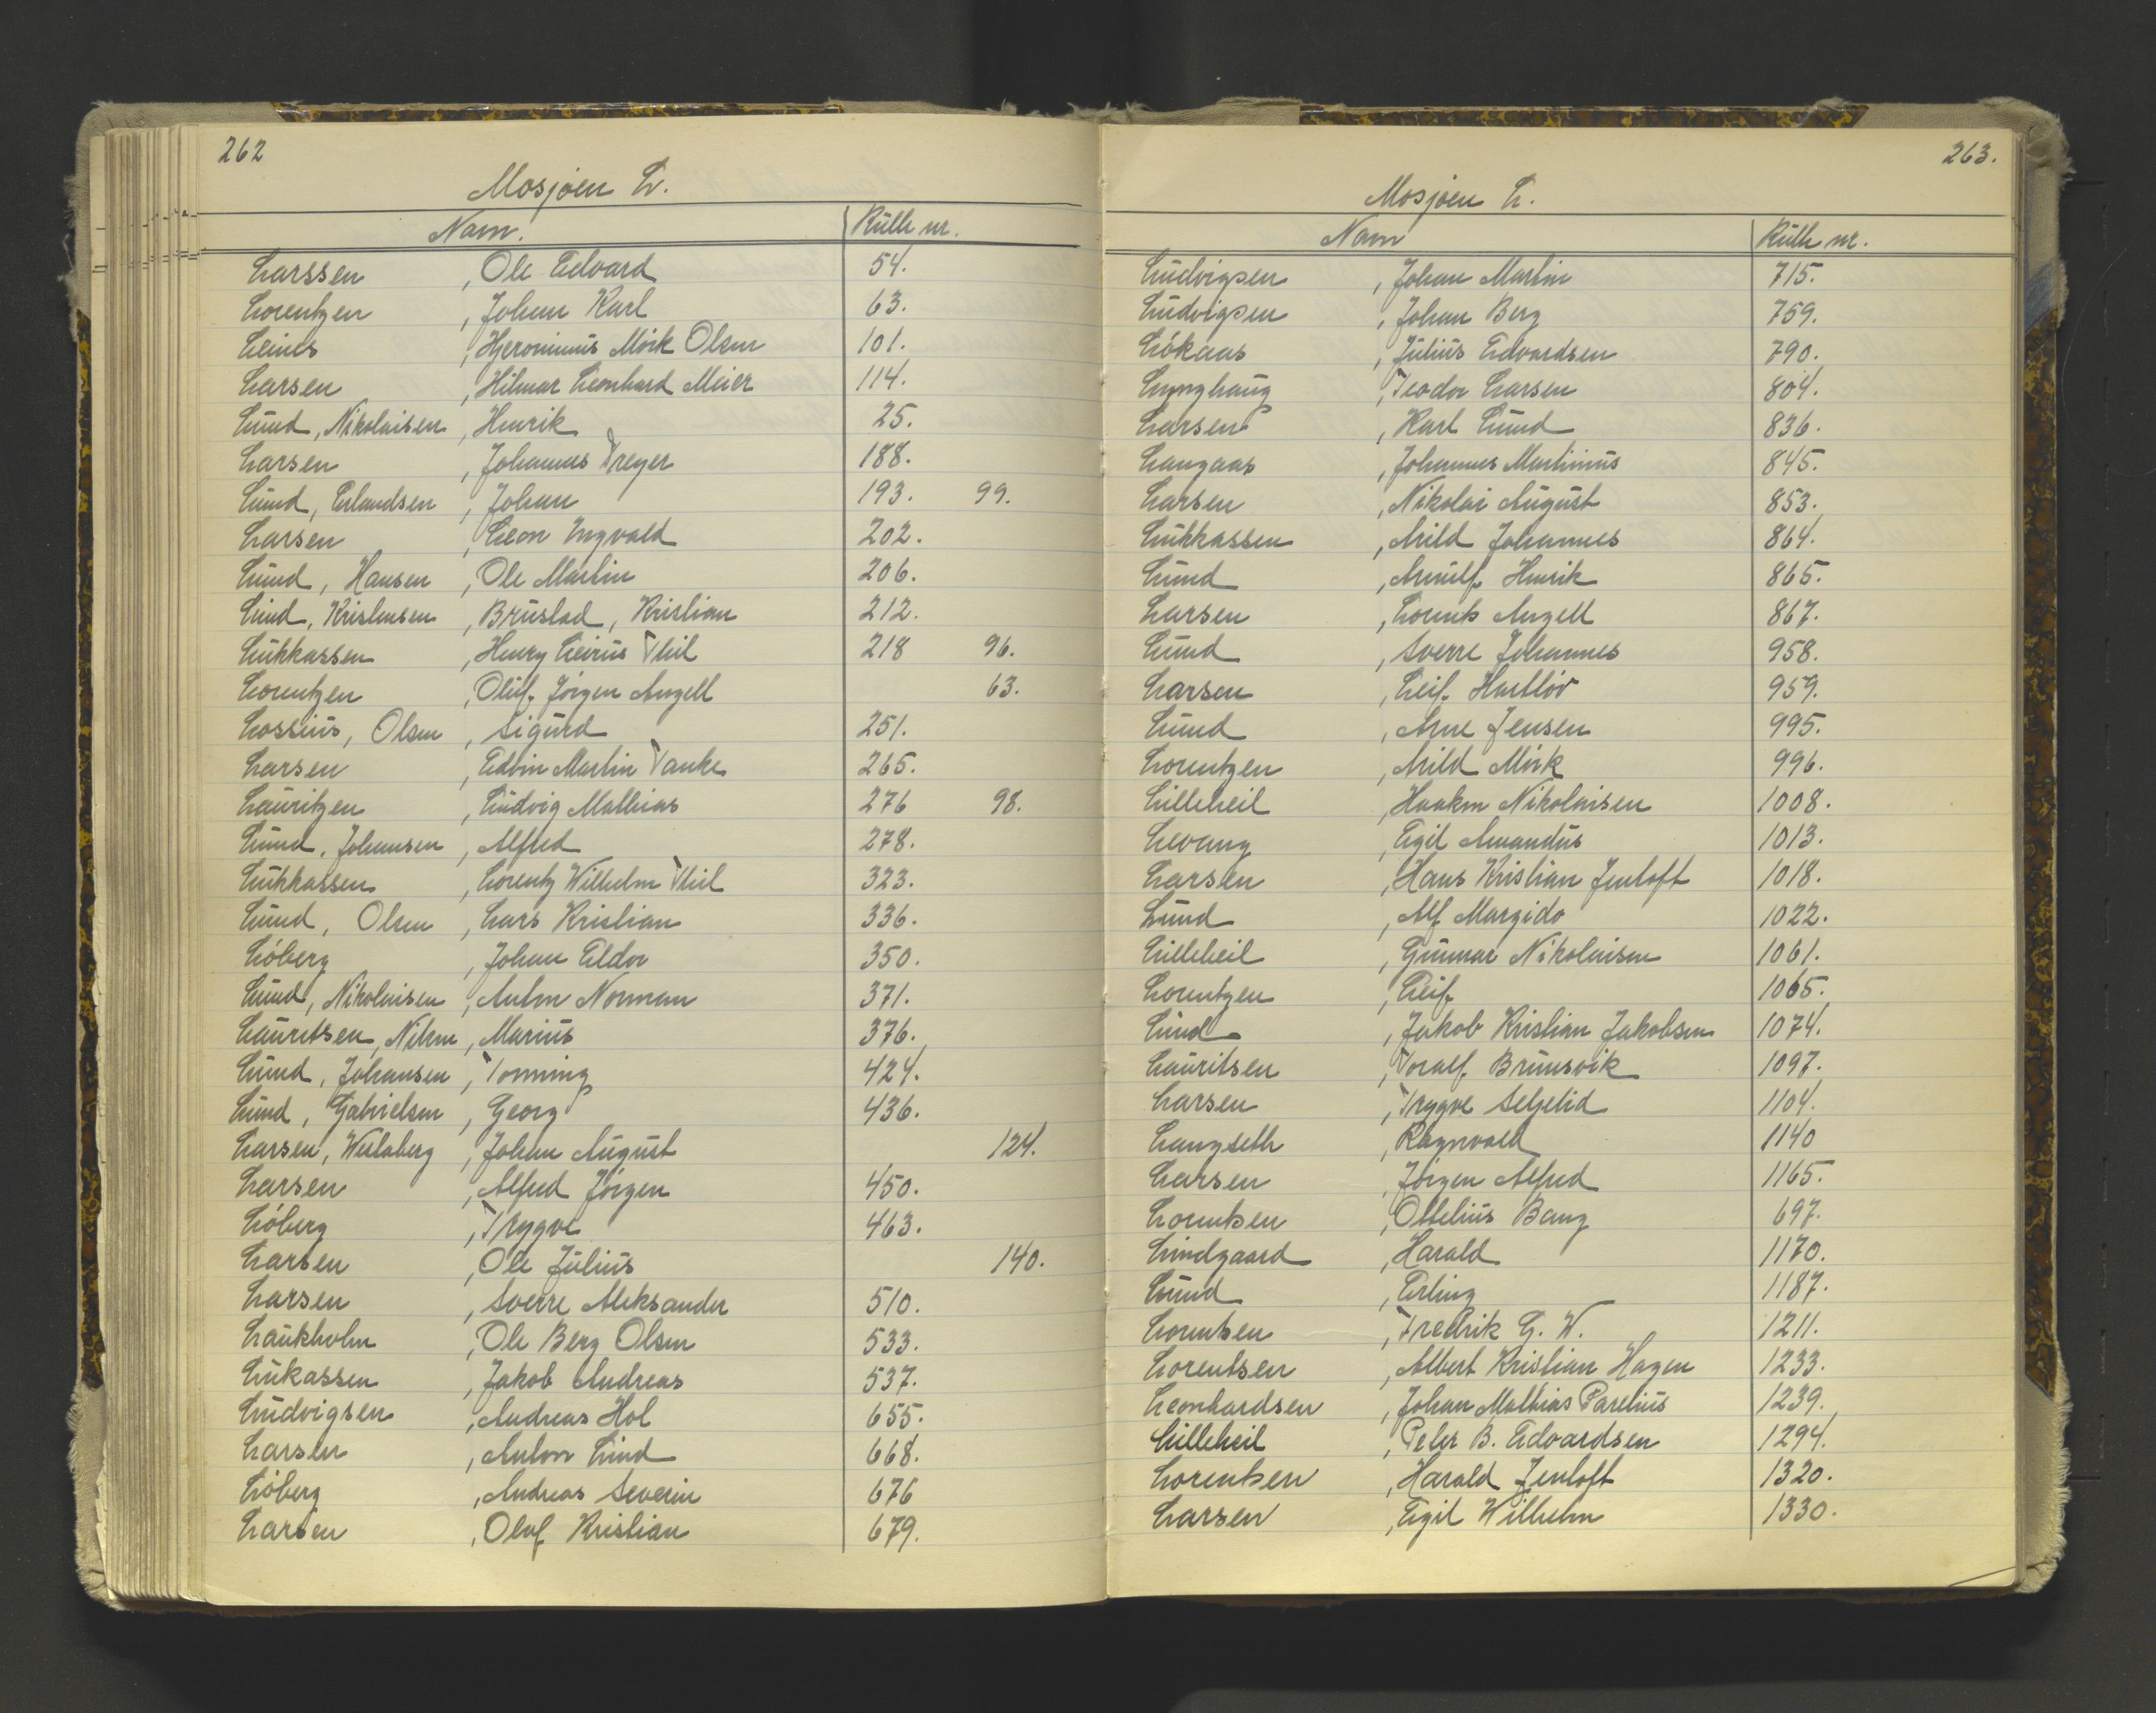 262
Mosjøen L.
Navn. Rulle nr.
Larssen, Ole Edvard 54.
Lorentzen, Johan Karl 63.
Leines, Hjeronimus Mörk Olsen 101.
Larsen, Hilmar Leonhard Meier 114.
Lund, Nikolaisen, Henrik 25.
Larsen, Johannes Dreyer 188.
Lund, Erlandsen, Johan 193. 99.
Larsen, Leon Ingvald 202.
Lund, Hansen, Ole Martin 206.
Lund, Kristensen, Brustad, Kristian 212.
Lukkassen, Henry Leirius Thil 218 96.
Lorentzen, Oluf Jörgen Angell 63.
Lossius, Olsen, Sigurd 251.
Larsen, Edvin Martin Tanke 265.
Lauritzen, Ludvig Mathias 276 98.
Lund, Johansen, Alfred 278.
Lukkassen, Lorentz Wilhelm Thil 323.
Lund, Olsen, Lars Kristian 336.
Löberg, Johan Eldor 350.
Lund, Nikolaisen, Anton Norman 371.
Lauritsen, Nilsen, Marius 376.
Lund, Johansen, Tonning 424.
Lund, Gabrielsen, Georg 436.
Larsen, Johan August 124.
Larsen, Alfred Jörgen 450.
Löberg, Trygve 463.
Larsen, Ole Julius 140.
Larsen, Sverre Aleksander 510.
Laukholm, Ole Berg Olsen 533.
Lukassen, Jakob Andreas 537.
Ludvigsen, Andreas Hol 655.
Larsen, Anton Lind 668.
Löberg, Andreas Severin 676
Larsen, Oluf Kristian 679.
263.
Mosjøen L.
Navn Rulle nr.
Ludvigsen, Johan Martin 715.
Ludvigsen, Johan Berg 759.
Lökaas, Julius Edvardsen 790.
Lynghaug, Teodor Larsen 804.
Larsen, Karl Lund 836.
Langaas, Johannes Martinius 845.
Larsen, Nikolai August 853.
Lukkassen, Arild Johannes 864.
Lund, Arnulf Henrik 865.
Larsen, Lorents Angell 867.
Lund, Sverre Johannes 958.
Larsen, Leif Hartlöv 959.
Lund, Arne Jensen 995.
Lorentzen, Arild Mörk 996.
Lilleheil, Haakon Nikolaisen 1008.
Levang, Egil Amandus 1013.
Larsen, Hans Kristian Jentoft 1018.
Lund, Alf Margido 1022.
Lilleheil, Gunnar Nikolaisen 1061.
Lorentzen, Leif 1065.
Lund, Jakob Kristian Jakobsen 1074.
Lauritsen, Toralf Brunsvik 1097.
Larsen, Trygve Seljelid 1104.
Langseth, Ragnvald 1140
Larsen, Jörgen Alfred 1165.
Lorentsen, Ottelius Bang 697.
Lindgaard, Harald 1170.
Lund, Erling 1187.
Lorentsen, Fredrik G. W. 1211.
Lorentsen, Albert Kristian Hagen 1233.
Leonhardsen, Johan Mathias Parelius 1239.
Lilleheil, Peter B. Edvardsen 1294.
Lorentsen, Harald Jentoft 1320.
Larsen, Egil Wilhelm 1330.